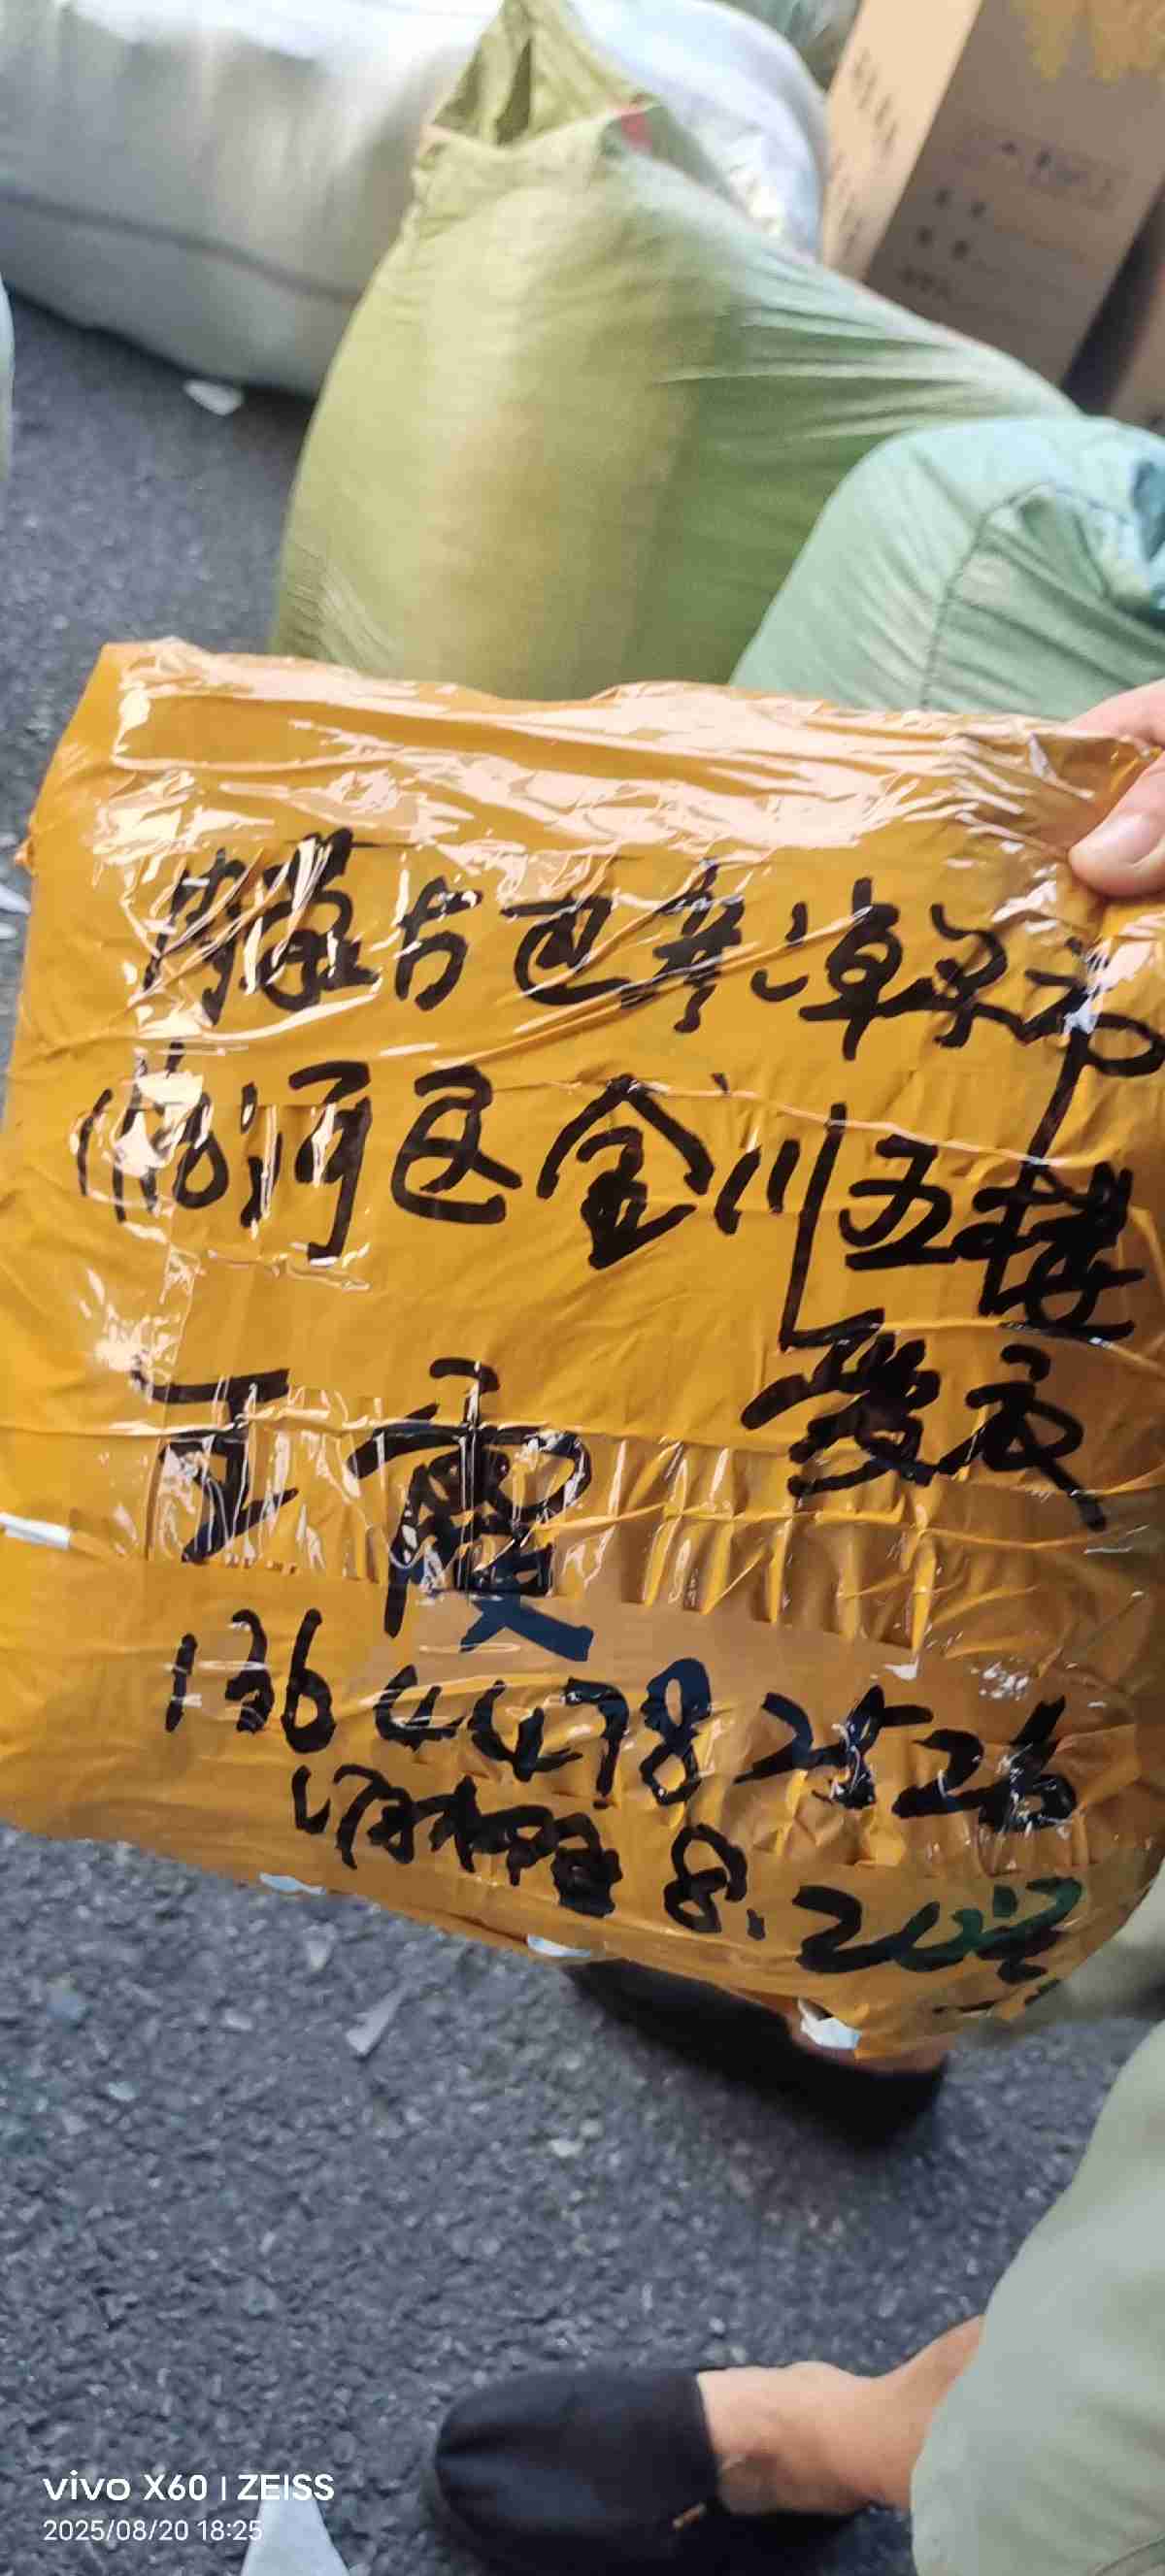 内蒙古巴彦淖尔市
临河区金川五楼
爱衣
王霞
13644782526
8.20号
vivo X60 | ZEISS
2025/08/20 18:25